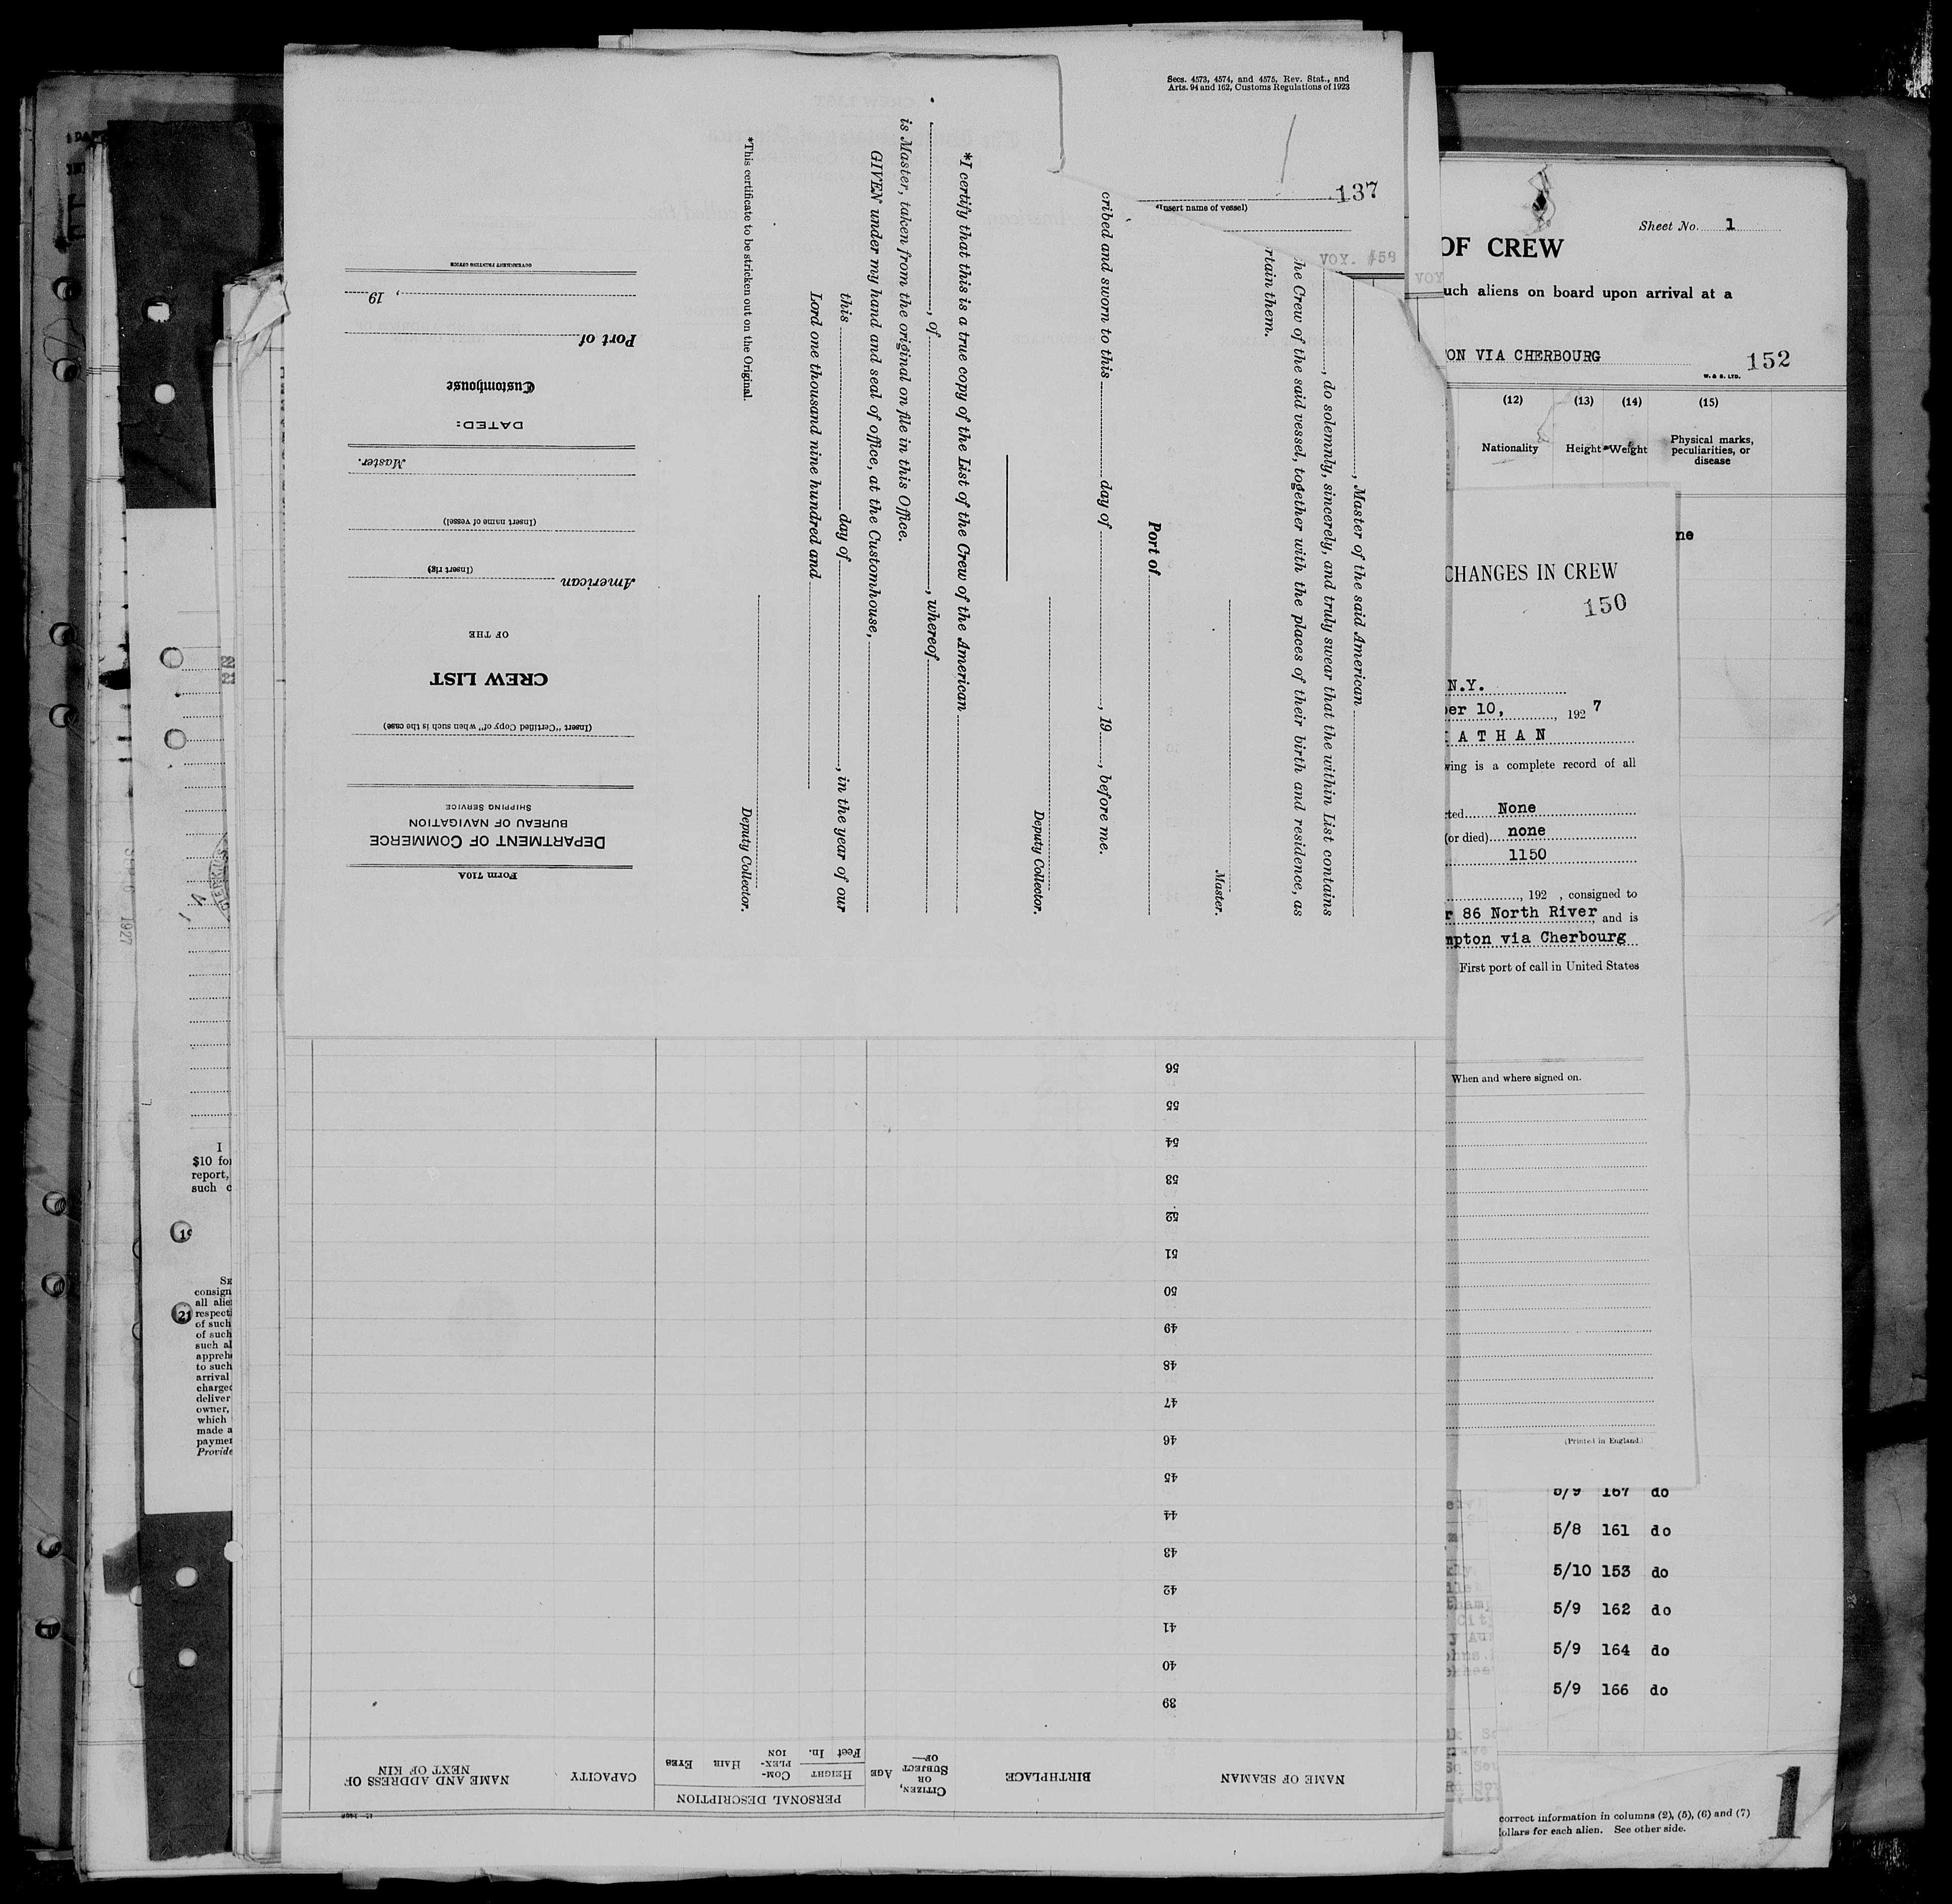 Secs. 4573, 4574, and 4575, Rev. Stat., and
Arts. 94 and 162, Customs Regulations of 1923
137
(Insert name of vessel)
VOY. 458
VOY
, Master of the said American
, do solemnly, sincerely, and truly swear that the within List contains
he Crew of the said vessel, together with the places of their birth and residence, as
rtain them.
Master.
Port of
cribed and sworn to this day of , 19 , before me.
Deputy Collector.
*I certify that this is a true copy of the List of the Crew of the American
, of , whereof
is Master, taken from the original on file in this Office.
GIVEN under my hand and seal of office, at the Customhouse,
this day of , in the year of our
Lord one thousand nine hundred and
Deputy Collector.
*This certificate to be stricken out on the Original.
Form 710A
DEPARTMENT OF COMMERCE
BUREAU OF NAVIGATION
SHIPPING SERVICE
(Insert "Certified Copy of" when such is the case)
CREW LIST
OF THE
American
(Insert rig)
(Insert name of vessel)
Master.
DATED:
Customhouse
Port of
, 19
GOVERNMENT PRINTING OFFICE
NAME OF SEAMAN
BIRTHPLACE
CITIZEN, OR SUBJECT OF—
AGE
PERSONAL DESCRIPTION
HEIGHT
Feet In.
COM-PLEX-ION
HAIR
EYES
CAPACITY
NAME AND ADDRESS OF NEXT OF KIN
39
40
41
42
43
44
45
46
47
48
49
50
51
52
53
54
55
56
Sheet No. 1
OF CREW
uch aliens on board upon arrival at a
ON VIA CHERBOURG
W. & S. LTD.
152
(12) (13) (14) (15)
Nationality Height Weight Physical marks, peculiarities, or disease
ne
CHANGES IN CREW
150
N.Y.
er 10, , 192 7
ATHAN
wing is a complete record of all
ted None
(or died) none
1150
, 192 , consigned to
r 86 North River, and is
mpton via Cherbourg
First port of call in United States
When and where signed on.
(Printed in England.)
5/9 167 do
5/8 161 do
5/10 153 do
5/9 162 do
5/9 164 do
5/9 166 do
correct information in columns (2), (5), (6) and (7)
ollars for each alien. See other side.
1
1927
I
$10 for
report,
such c
19
21
SE
consign
all alie
respecti
of such
of such
such al
appreh
to such
arrival
charged
deliver
owner,
which
made a
paymen
Provide